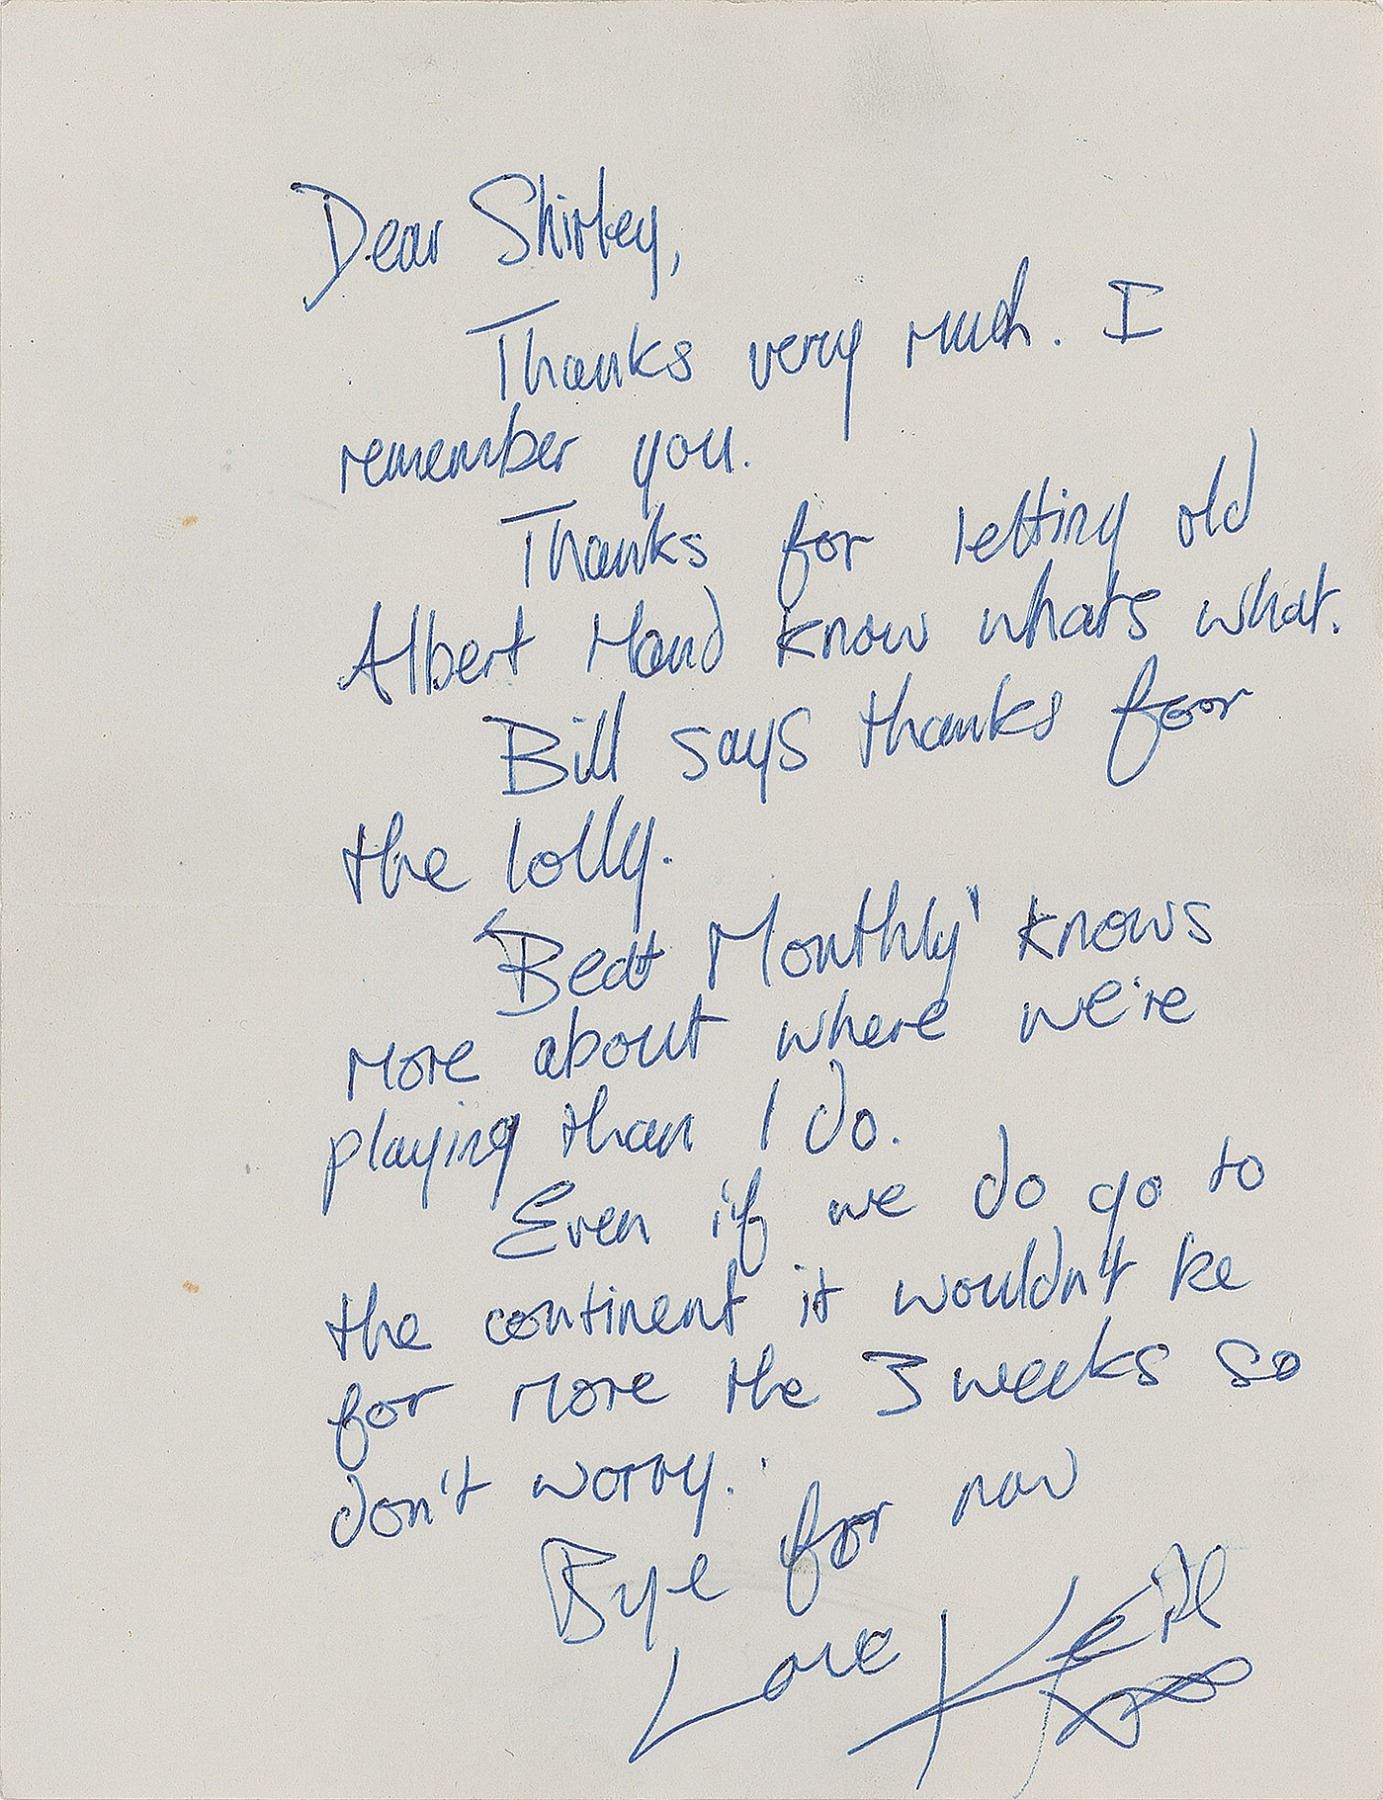 Dear Shirley,
Thanks very much. I
remember you.
Thanks for letting old
Albert Hand know whats what.
Bill says thanks foor
the lolly.
'Beat Monthly' knows
more about where we're
playing than I do.
Even if we do go to
the continent it wouldn't be
for more the 3 weeks so
don't worry.
Bye for now
Love Keith
xxx